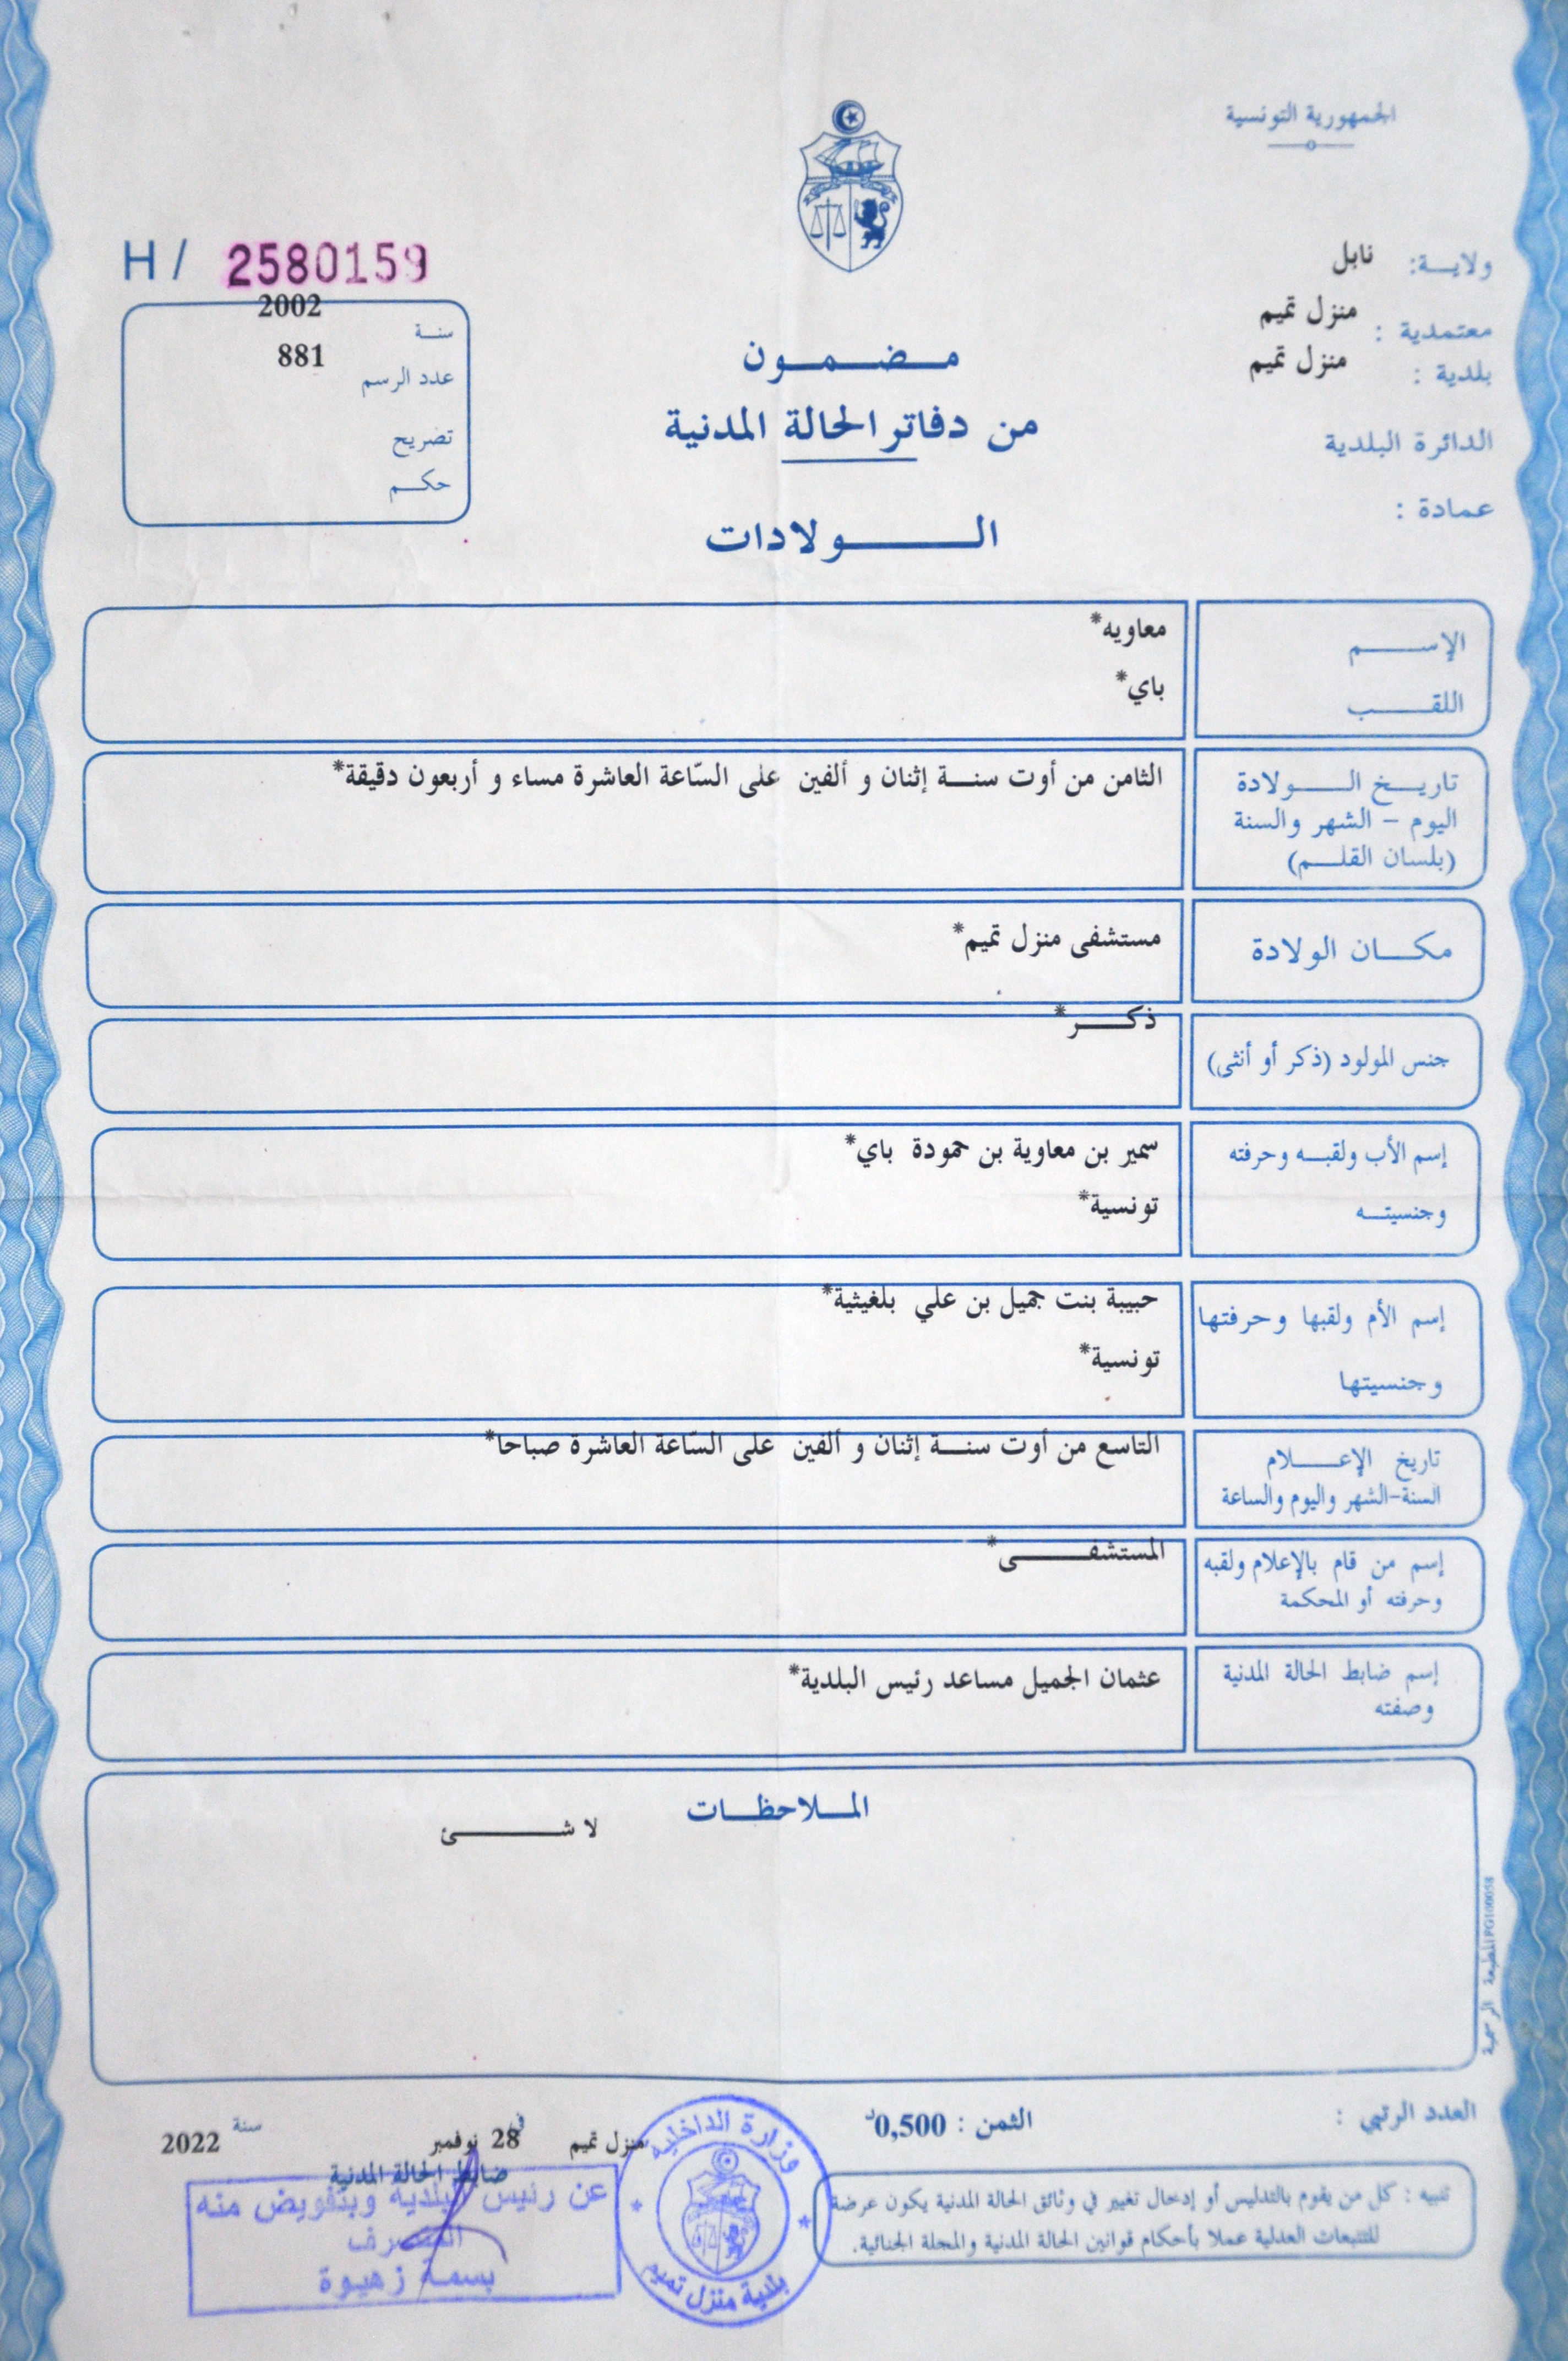 الجمهورية التونسية
ولايـــة: نابل
معتمدية : منزل تميم
بلدية : منزل تميم
الدائرة البلدية
عمادة :
مـــضـــمـــون
من دفاتر الحالة المدنية
الـــــولادات
H / 2580159
سنــة 2002
عدد الرسم 881
تصريح
حكــم
الإســـــم معاويه*
اللقـــــب باي*
تاريـــخ الـــــولادة
اليوم - الشهر والسنة
(بلسان القلـــم)
الثامن من أوت سنـــة إثنان و ألفين على السّاعة العاشرة مساء و أربعون دقيقة*
مكـــان الولادة مستشفى منزل تميم*
جنس المولود (ذكر أو أنثى) ذكــــر*
إسم الأب ولقبــه وحرفته سمير بن معاوية بن حمودة باي*
وجنسيتــه تونسية*
إسم الأم ولقبها وحرفتها حبيبة بنت جميل بن علي بلغيثية*
وجنسيتها تونسية*
تاريخ الإعـــــلام
السنة-الشهر واليوم والساعة
التاسع من أوت سنـــة إثنان و ألفين على السّاعة العاشرة صباحا*
إسم من قام بالإعلام ولقبه
وحرفته أو المحكمة
المستشفـــــى*
إسم ضابط الحالة المدنية
وصفته
عثمان الجميل مساعد رئيس البلدية*
المــلاحظــات
لا شـــــــئ
المطبعة الرسمية PG100058
العدد الرتبي :
الثمن : 0,500د
منزل تميم في 28 نوفمبر سنة 2022
ضابط الحالة المدنية
عن رئيس البلدية وبتفويض منه
المتصرف
بسمة زهيوة
وزارة الداخلية
بلدية منزل تميم
تنبيه : كل من يقوم بالتدليس أو إدخال تغيير في وثائق الحالة المدنية يكون عرضة
للتتبعات العدلية عملا بأحكام قوانين الحالة المدنية والمجلة الجنائية.